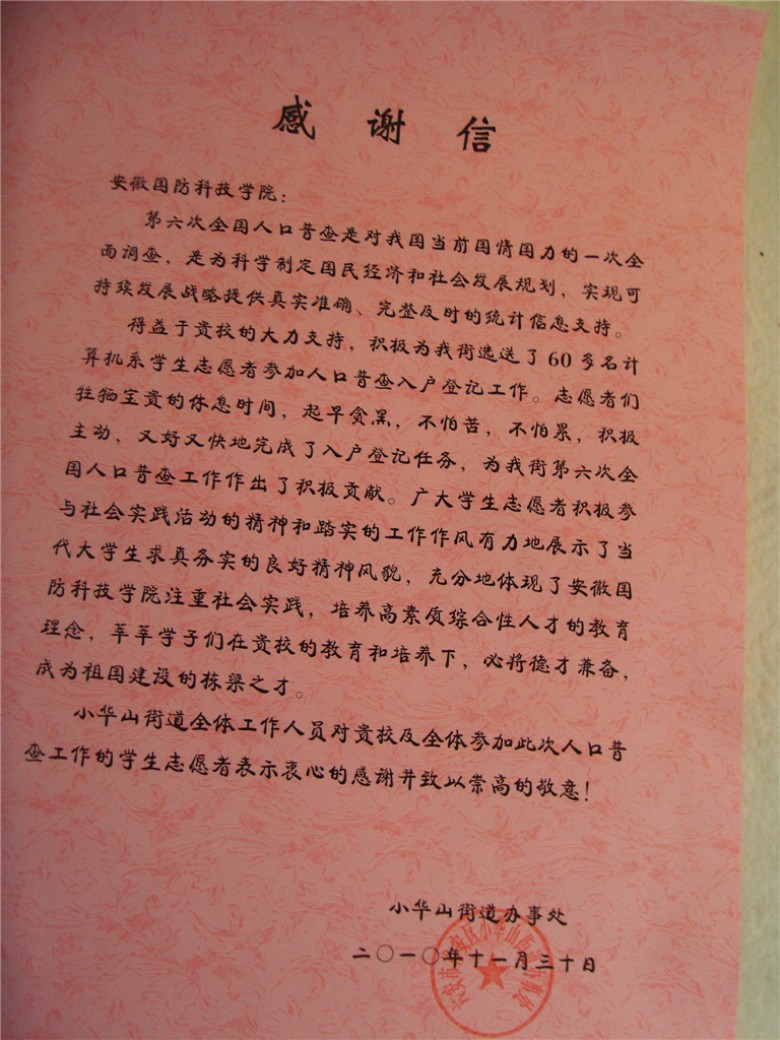 感谢信
安徽国防科技学院：
第六次全国人口普查是对我国当前国情国力的一次全
面调查，是为科学制定国民经济和社会发展规划，实现可
持续发展战略提供真实准确、完整及时的统计信息支持。
得益于贵校的大力支持，积极为我街选送了60多名计
算机系学生志愿者参加人口普查入户登记工作。志愿者们
牲牺宝贵的休息时间，起早贪黑，不怕苦，不怕累，积极
主动，又好又快地完成了入户登记任务，为我街第六次全
国人口普查工作作出了积极贡献。广大学生志愿者积极参
与社会实践活动的精神和踏实的工作作风有力地展示了当
代大学生求真务实的良好精神风貌，充分地体现了安徽国
防科技学院注重社会实践，培养高素质综合性人才的教育
理念，莘莘学子们在贵校的教育和培养下，必将德才兼备，
成为祖国建设的栋梁之才。
小华山街道全体工作人员对贵校及全体参加此次人口普
查工作的学生志愿者表示衷心的感谢并致以崇高的敬意！
小华山街道办事处
二〇一〇年十一月三十日